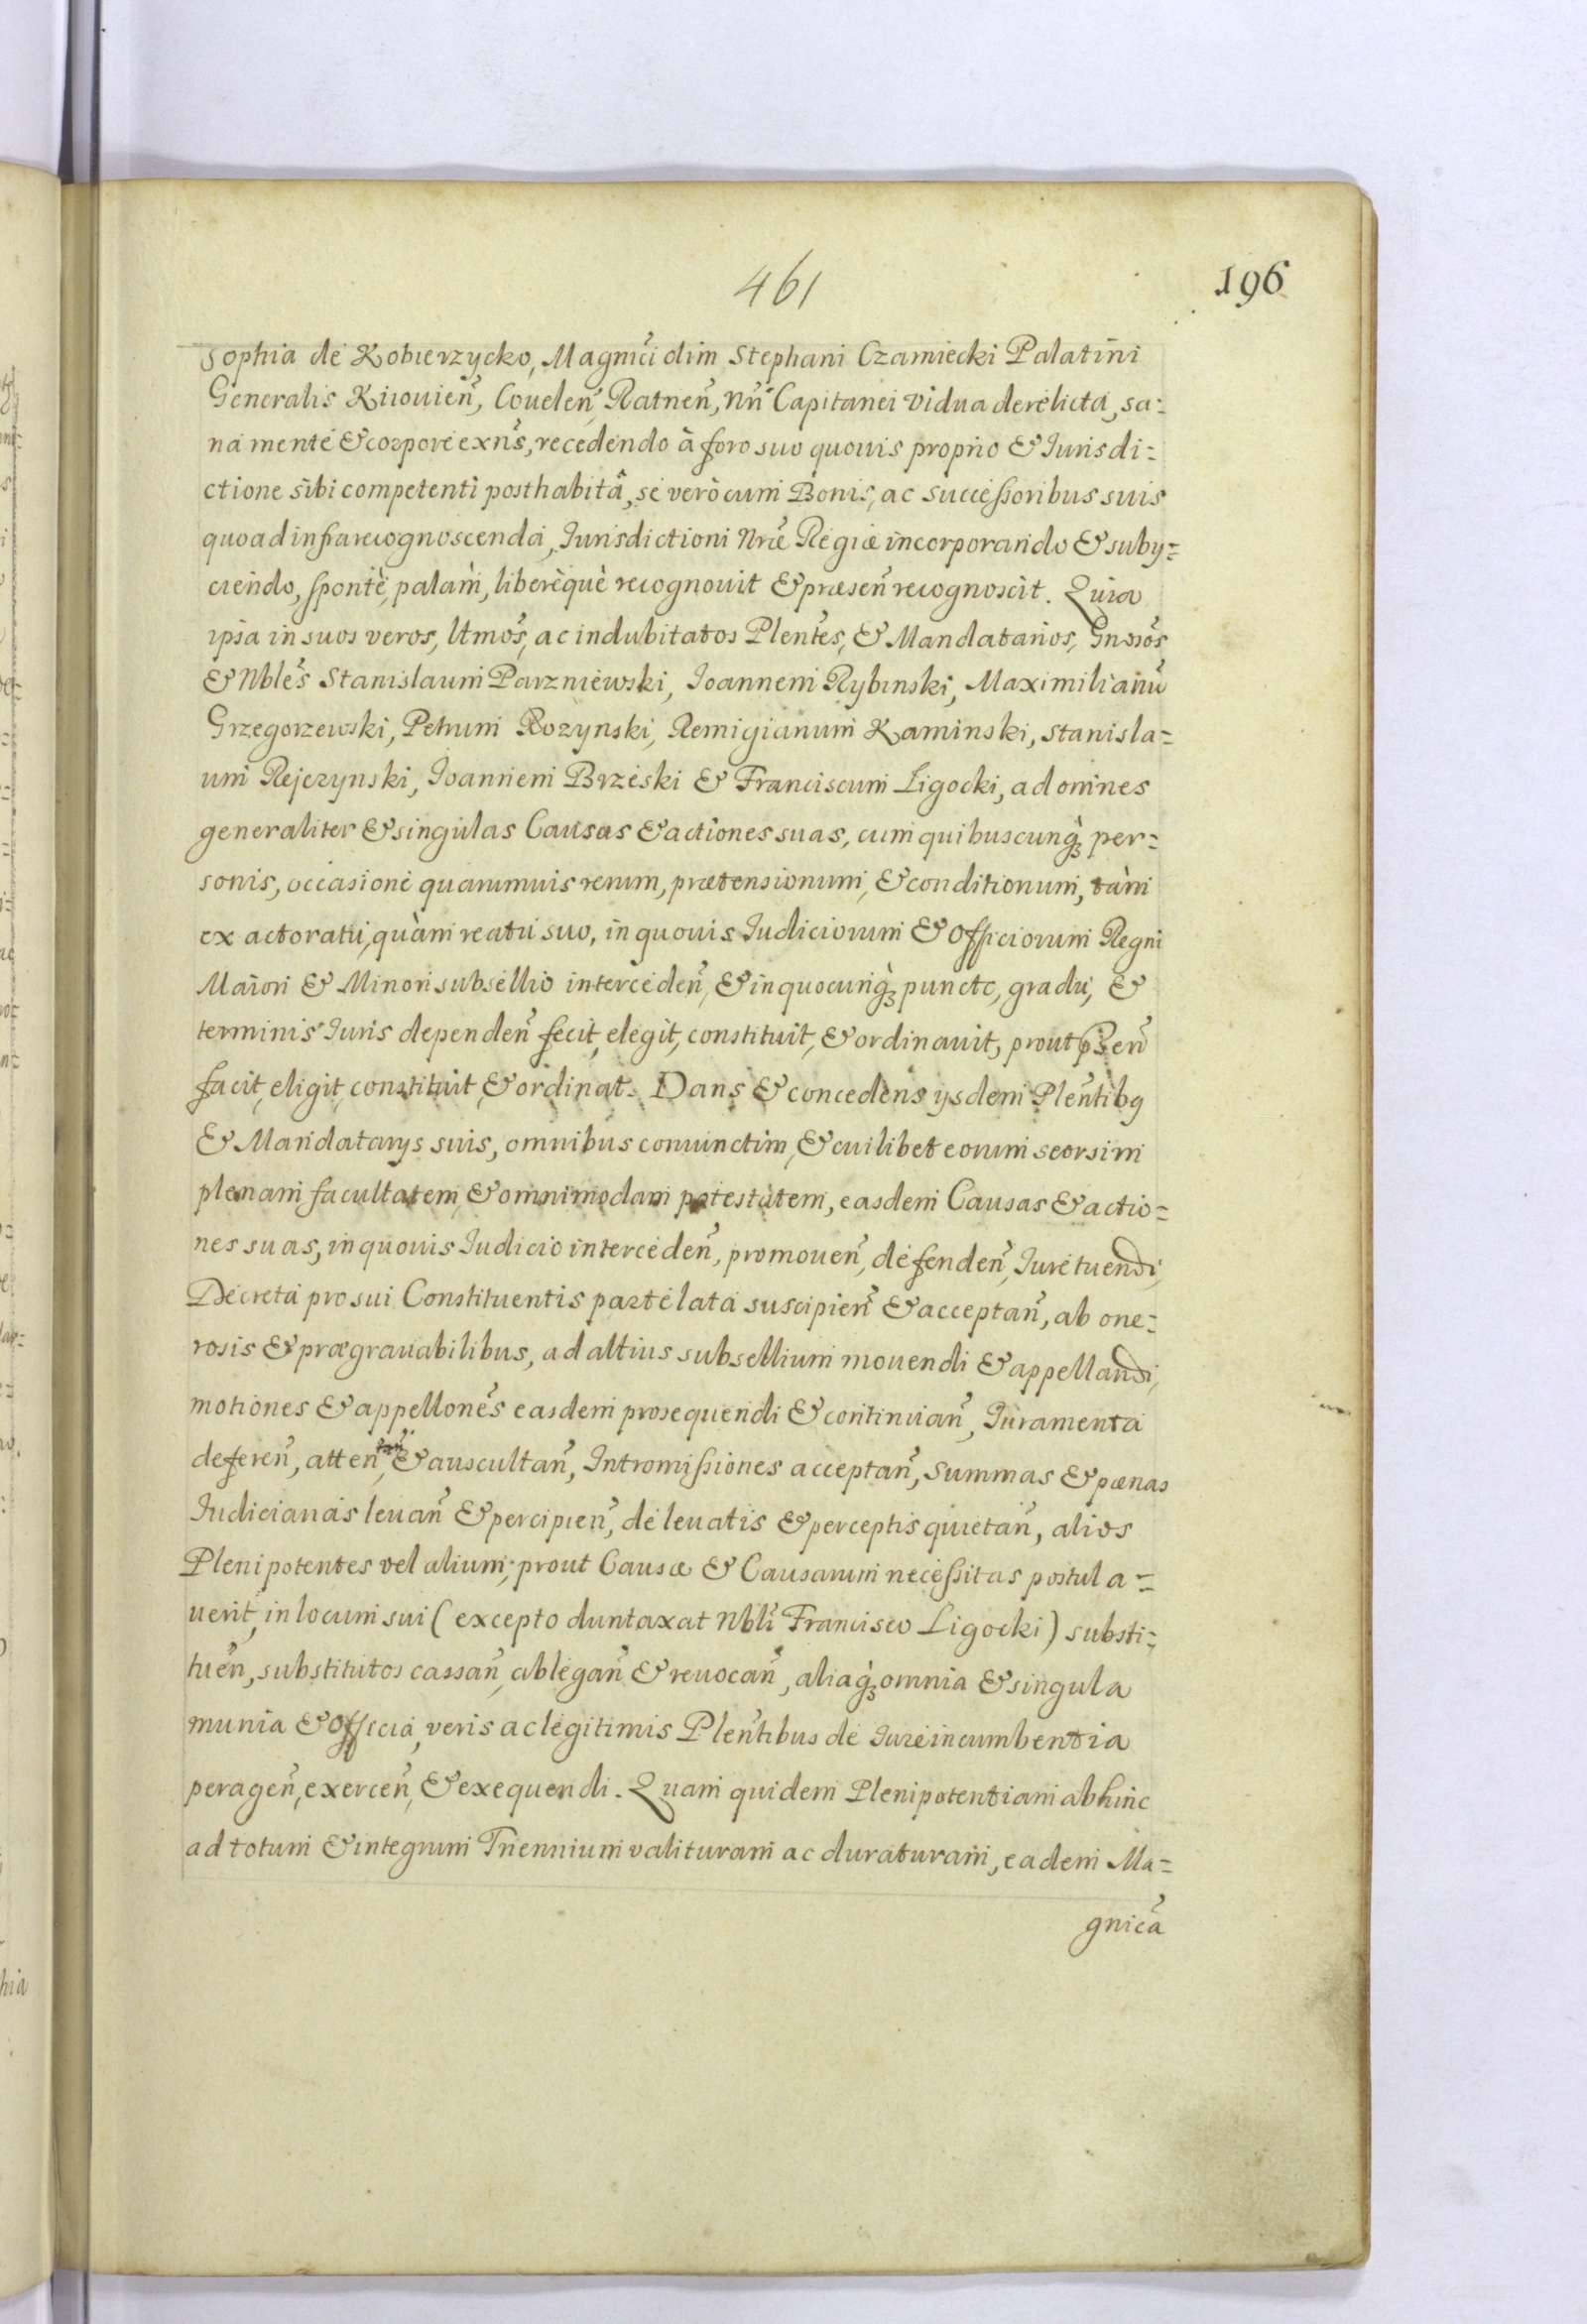 461
196
Sophia de Kobierzycko, Magnıc̃i olim Stephani Czarniecki Palatini
Generalis Kiiouien̄, Couelen̄, Ratnen̄, nn̄ Capitanei Vidua derelicta, sa=
na mente & corpore exn̄s, recedendo à foro suo quouis proprio & Iurisdi=
ctione sibi competenti posthabitâ, se verò cum Bonis, ac successoribus suis
quoad infrarecognoscenda, Iurisdictioni Nræ Regiæ incorporando & suby=
ciendo, sponte, palàm, liberèquè recognouit & præsen̄ recognoscit. Quia
ipsa in suos veros, ltmos̃, ac indubitatos Plentes̃, & Mandatarios, Gnosos̃
& Nbles̃ Stanislaum Parzniewski, Joannem Rybinski, Maximilianū
Grzegorzewski, Petrum Rozynski, Remigianum Kaminski, Stanisla=
um Rejczynski, Joannem Brzeski & Franciscum Ligocki, ad omnes
generaliter & singulas Causas & actiones suas, cum quibuscunq̀ꝫ per=
sonis, occasione quarumuis rerum, prætensionum, & conditionum, tàm
ex actoratu, quàm reatu suo, in quouis Iudiciorum & Officiorum Regni
Maiori & Minori subsellio interceden̄, & in quocunq̀ꝫ puncto, gradu, &
terminis Iuris dependen̄ fecit, elegit, constituit, & ordinauit, prout p̃sen̄
facit, eligit, constituit & ordinat. Dans & concedens ysdem Plen̄tibꝫ
& Mandatarys suis, omnibus coniunctim, & cuilibet eorum seorsim
plenam facultatem, & omnimodam potestatem, easdem Causas & actio=
nes suas, in quouis Iudicio interceden̄, promouen̄, defenden̄, Iure tuendi,
Decreta pro sui Constituentis parte lata suscipien̄ & acceptan̄, ab one=
rosis & prægrauabilibus, ad altius subsellium mouendi & appellandi,
motiones & appellones̃ easdem prosequendi & continuan̄, Iuramenta
deferen̄, atten tan̄, & auscultan̄, Intromissiones acceptan̄, Summas & pænas
Iudicianas leuan̄ & percipien̄, de leuatis & perceptis quietan̄, alios
Plenipotentes vel alium, prout Causæ & Causarum necessitas postula=
uerit, in locum sui (excepto duntaxat Nbli Francisco Ligocki) substi=
tuen̄, substitutos cassan̄, ablegan̄ & reuocan̄, aliaq̀ꝫ omnia & singula
munia & Officia, veris ac legitimis Plen̄tibus de Iure incumbentia
peragen̄, exercen̄, & exequendi. Quam quidem Plenipotentiam abhinc
ad totum & integrum Triennium valituram ac duraturam, eadem Ma=
gnic̃a